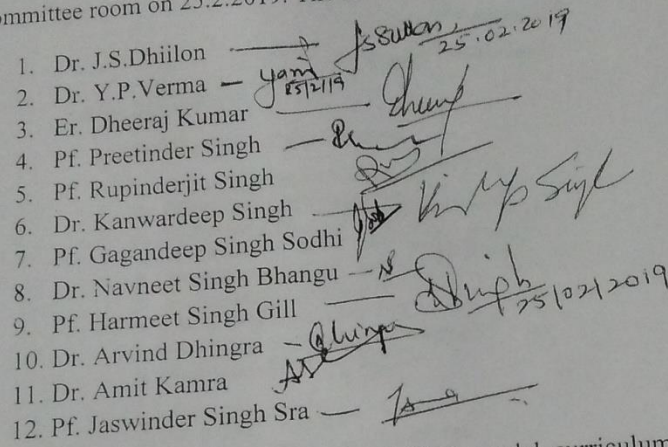 mmittee room on 25.2.2019.
1. Dr. J.S.Dhiilon 25.02.2019
2. Dr. Y.P.Verma 25/2/19
3. Er. Dheeraj Kumar
4. Pf. Preetinder Singh
5. Pf. Rupinderjit Singh
6. Dr. Kanwardeep Singh
7. Pf. Gagandeep Singh Sodhi
8. Dr. Navneet Singh Bhangu
9. Pf. Harmeet Singh Gill 25/02/2019
10. Dr. Arvind Dhingra
11. Dr. Amit Kamra
12. Pf. Jaswinder Singh Sra
curriculum